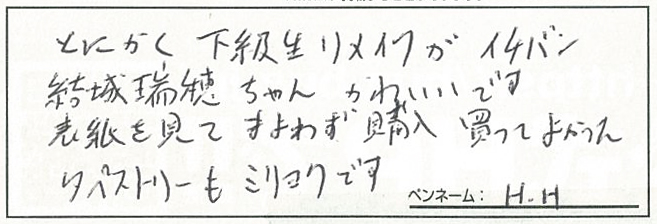 とにかく 下級生リメイクが イチバン
結城瑞穂ちゃん かわいいです
表紙を見て まよわず購入 買ってよかった
タペストリーも ミリョクです
ペンネーム： H.H